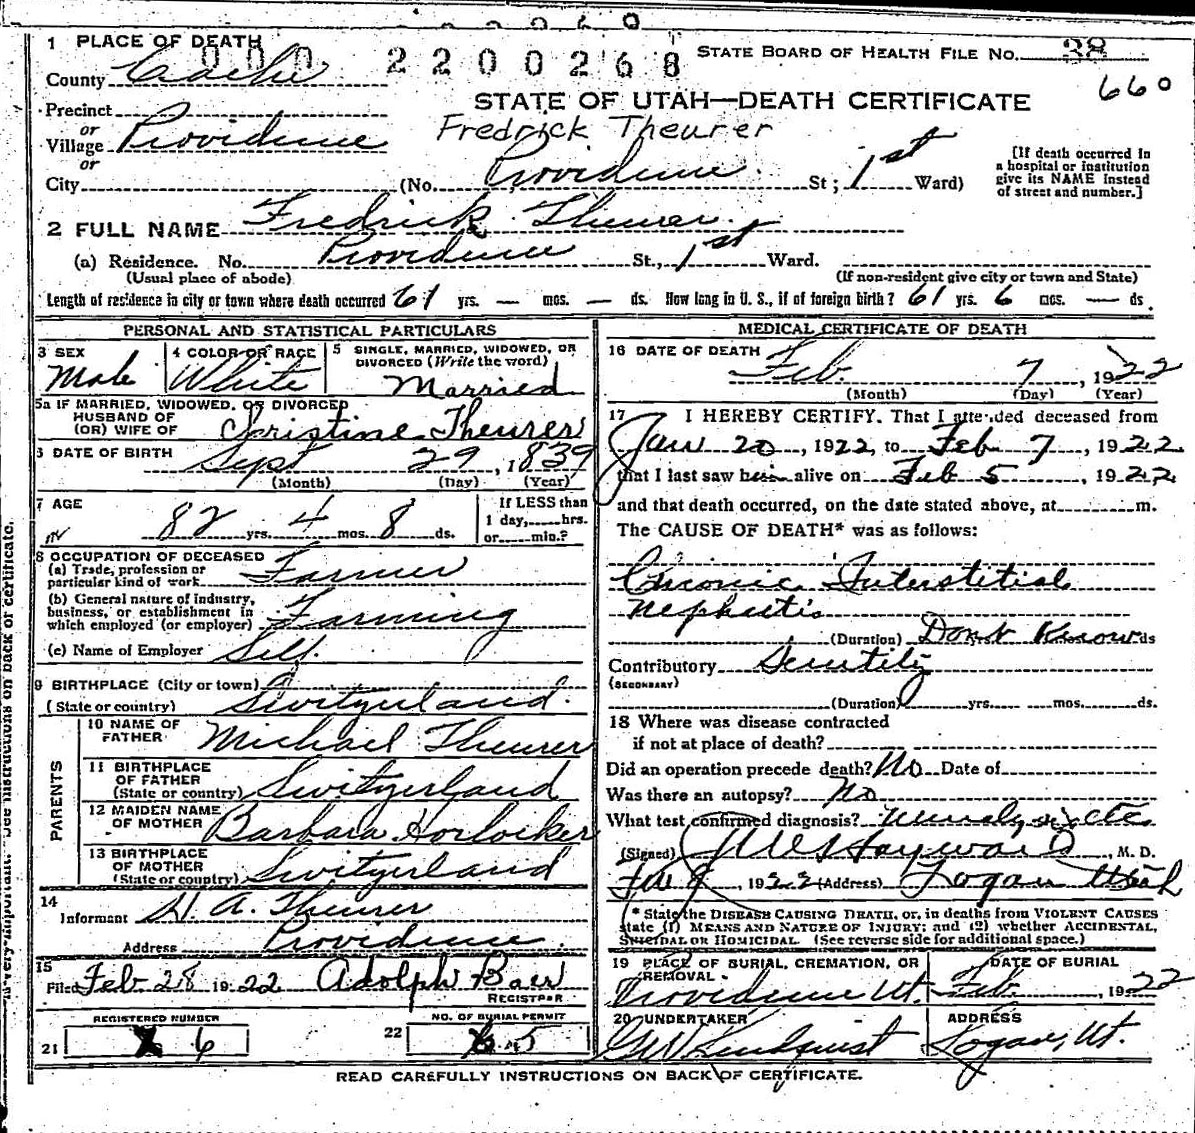 1 PLACE OF DEATH
000 2200268
STATE BOARD OF HEALTH FILE NO. 38
County Cache
660
STATE OF UTAH—DEATH CERTIFICATE
Precinct
or
Village Providence
Fredrick Theurer
or
City (No. Providence. St; 1st Ward)
[If death occurred in
a hospital or institution
give its NAME instead
of street and number.]
2 FULL NAME Fredrick Theurer.
(a) Residence. No. Providence St., 1st Ward.
(Usual place of abode) (If non-resident give city or town and State)
Length of residence in city or town where death occurred 61 yrs. — mos. — ds. How long in U. S., if of foreign birth? 61 yrs. 6 mos. — ds.
PERSONAL AND STATISTICAL PARTICULARS
3 SEX
Male
4 COLOR OR RACE
White
5 SINGLE, MARRIED, WIDOWED, OR
DIVORCED (Write the word)
Married
5a IF MARRIED, WIDOWED, OR DIVORCED
HUSBAND OF
(OR) WIFE OF Christine Theurer
6 DATE OF BIRTH
Sept 29, 1839
(Month) (Day) (Year)
7 AGE
82 yrs. 4 mos. 8 ds.
If LESS than
1 day, hrs.
or min.?
8 OCCUPATION OF DECEASED
(a) Trade, profession or
particular kind of work Farmer
(b) General nature of industry,
business, or establishment in
which employed (or employer) Farming
(c) Name of Employer Self.
9 BIRTHPLACE (City or town)
(State or country) Switzerland.
PARENTS
10 NAME OF
FATHER Michael Theurer
11 BIRTHPLACE
OF FATHER
(State or country) Switzerland
12 MAIDEN NAME
OF MOTHER Barbara Horlocker
13 BIRTHPLACE
OF MOTHER
(State or country) Switzerland
14
Informant A. Theurer
Address Providence.
15
Filed Feb 28 1922 Adolph Baer
REGISTRAR
REGISTERED NUMBER
21 6
NO. OF BURIAL PERMIT
22 5
MEDICAL CERTIFICATE OF DEATH
16 DATE OF DEATH
Feb. 7, 1922
(Month) (Day) (Year)
17 I HEREBY CERTIFY, That I attended deceased from
Jan 20, 1922, to Feb 7, 1922
that I last saw him alive on Feb 5, 1922
and that death occurred, on the date stated above, at m.
The CAUSE OF DEATH* was as follows:
Chronic Interstitial
Nephritis
(Duration) Don't Know ds
Contributory Senility
(SECONDARY)
(Duration) yrs. mos. ds.
18 Where was disease contracted
if not at place of death?
Did an operation precede death? No Date of
Was there an autopsy? No
What test confirmed diagnosis?
(Signed) Hayward, M. D.
1922 (Address) Logan Utah
* State the DISEASE CAUSING DEATH, or, in deaths from VIOLENT CAUSES
state (1) MEANS AND NATURE OF INJURY; and (2) whether ACCIDENTAL,
SUICIDAL OR HOMICIDAL. (See reverse side for additional space.)
19 PLACE OF BURIAL, CREMATION, OR
REMOVAL
Providence Ut.
DATE OF BURIAL
Feb. 1922
20 UNDERTAKER
Lindquist
ADDRESS
Logan, Ut.
READ CAREFULLY INSTRUCTIONS ON BACK OF CERTIFICATE.
is very important. See instructions on back of certificate.